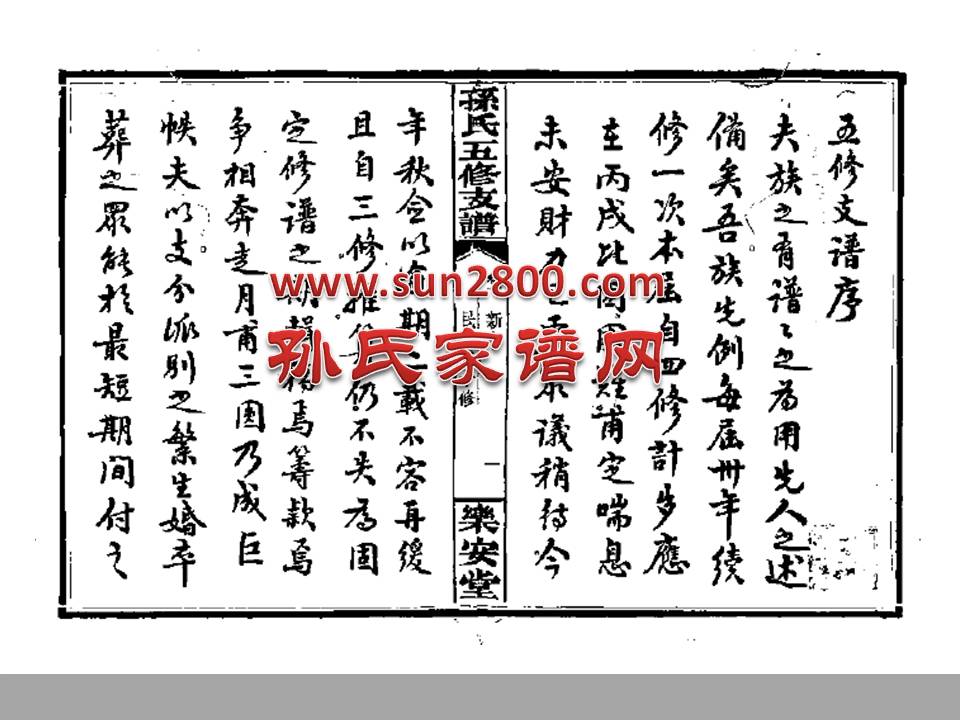 五修支谱序
夫族之有谱々之為用先人之述
備矣吾族先例每屆卅年續
修一次本屆自四修計步應
在丙戌比因国難甫定喘息
未安財力議稍待今
孫氏五修支譜
新
民
修
一
樂安堂
年秋会以期載不容再緩
且自三修仍不失為固
定修谱之期焉籌款焉
争相奔走月甫三圓乃成巨
帙夫以支分派別之繁生婚卒
葬之眾能於最短期间付之
www.sun2800.com
孙氏家谱网